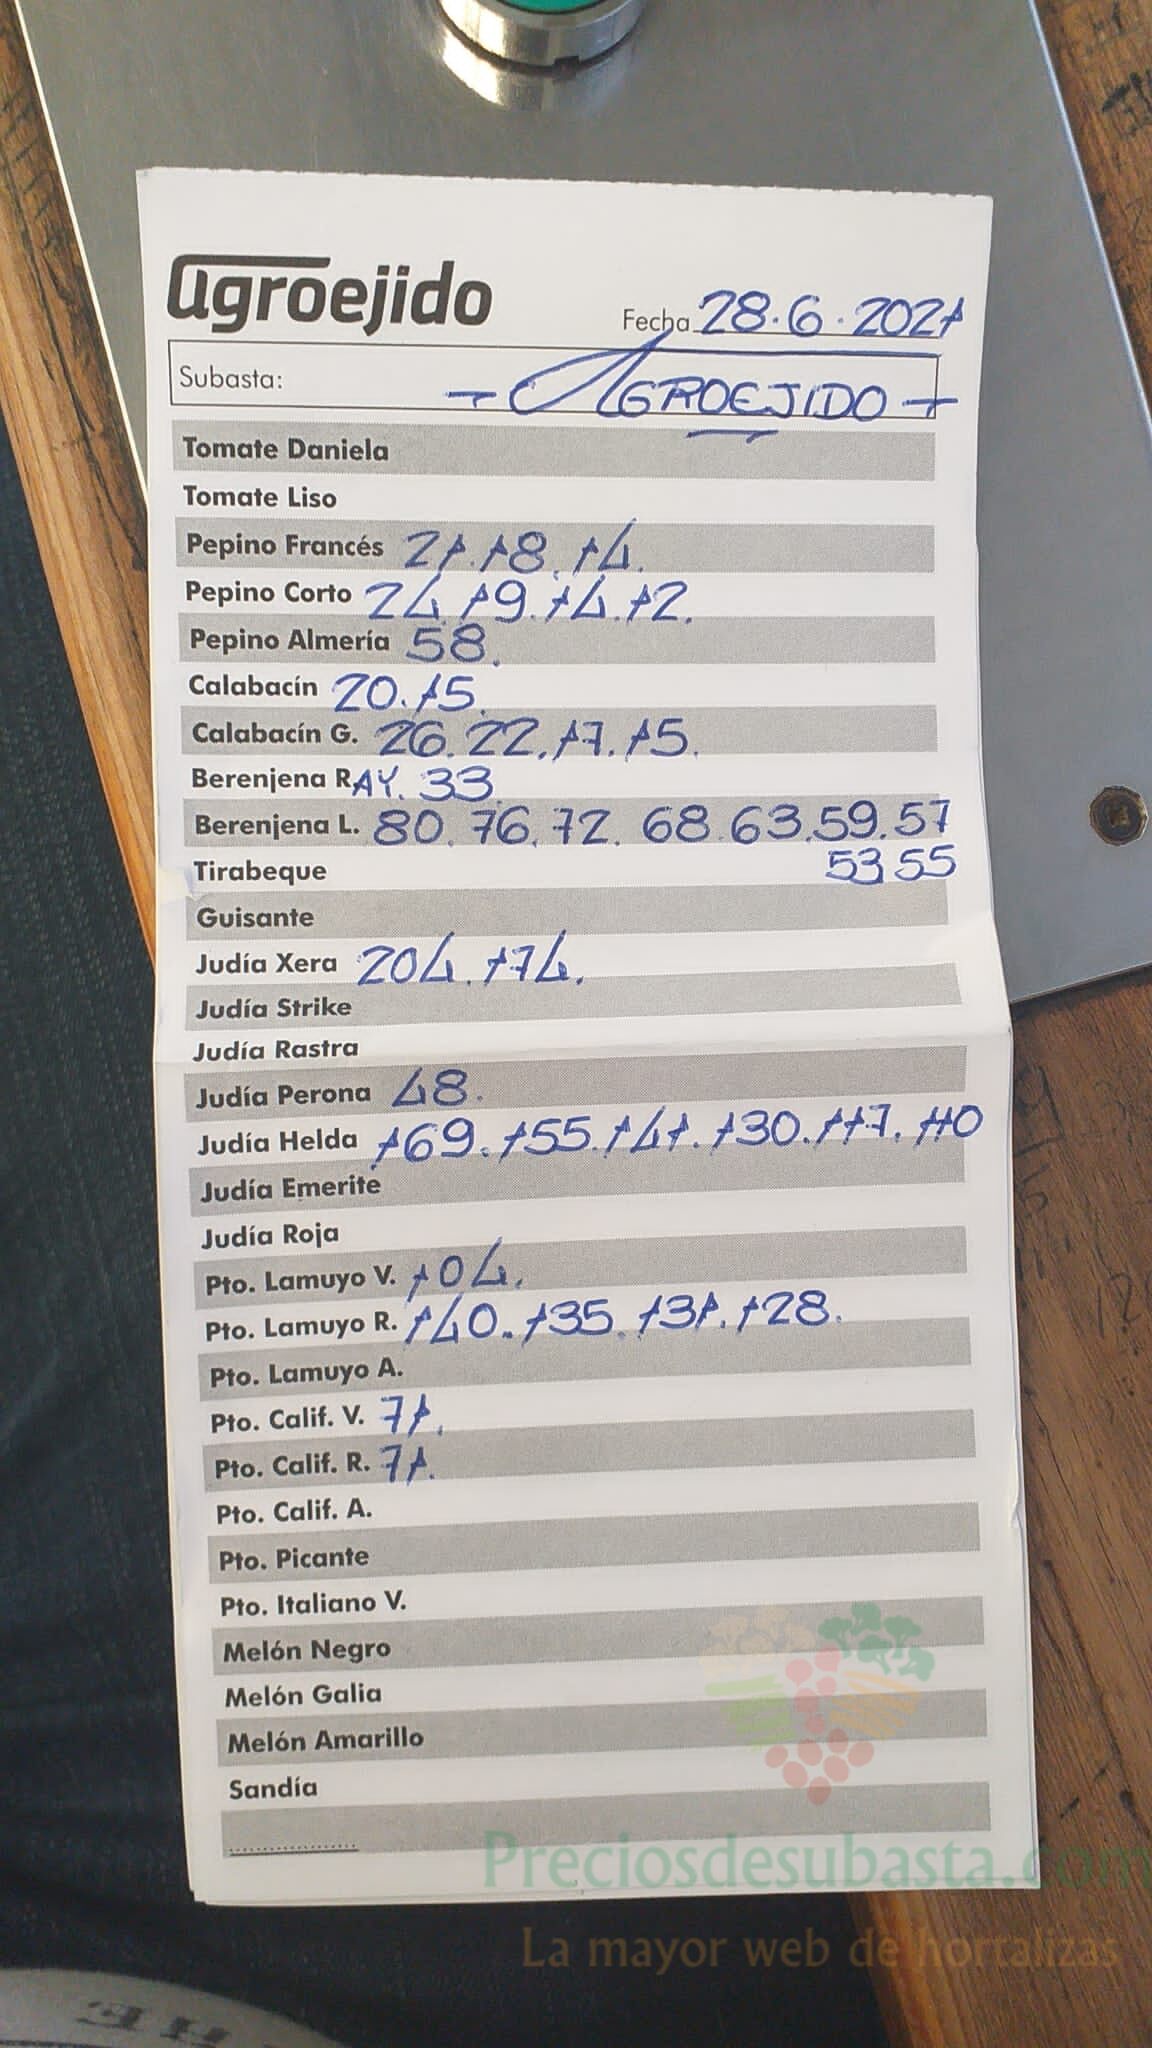 agroejido
Fecha 28.6.2021
Subasta: - AGROEJIDO -
Tomate Daniela
Tomate Liso
Pepino Francés 21.18.14.
Pepino Corto 24.19.14.12.
Pepino Almería 58.
Calabacín 20.15.
Calabacín G. 26.22.17.15.
Berenjena RAY. 33
Berenjena L. 80.76.72.68.63.59.57
Tirabeque 53 55
Guisante
Judía Xera 204.174.
Judía Strike
Judía Rastra
Judía Perona 48.
Judía Helda 169.155.141.130.117.110
Judía Emerite
Judía Roja
Pto. Lamuyo V. 104.
Pto. Lamuyo R. 140.135.131.128.
Pto. Lamuyo A.
Pto. Calif. V. 71.
Pto. Calif. R. 71.
Pto. Calif. A.
Pto. Picante
Pto. Italiano V.
Melón Negro
Melón Galia
Melón Amarillo
Sandía
Preciosdesubasta.com
La mayor web de hortalizas